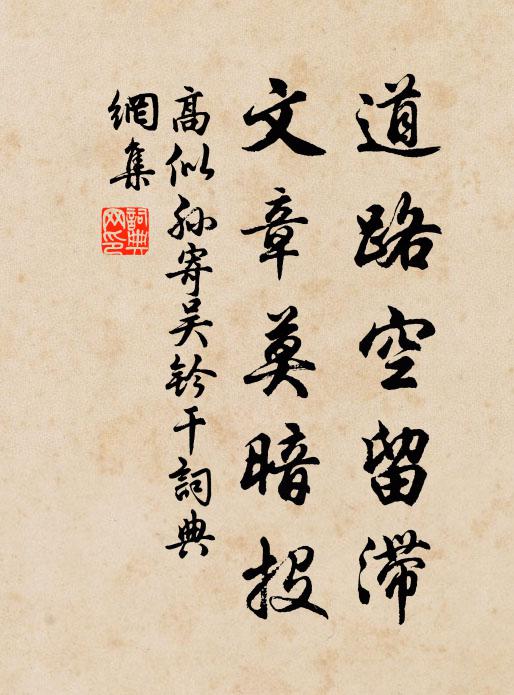 道路空留滞
文章莫暗投
高似孙寄吴鈐干詞典
網集
詞典
网印